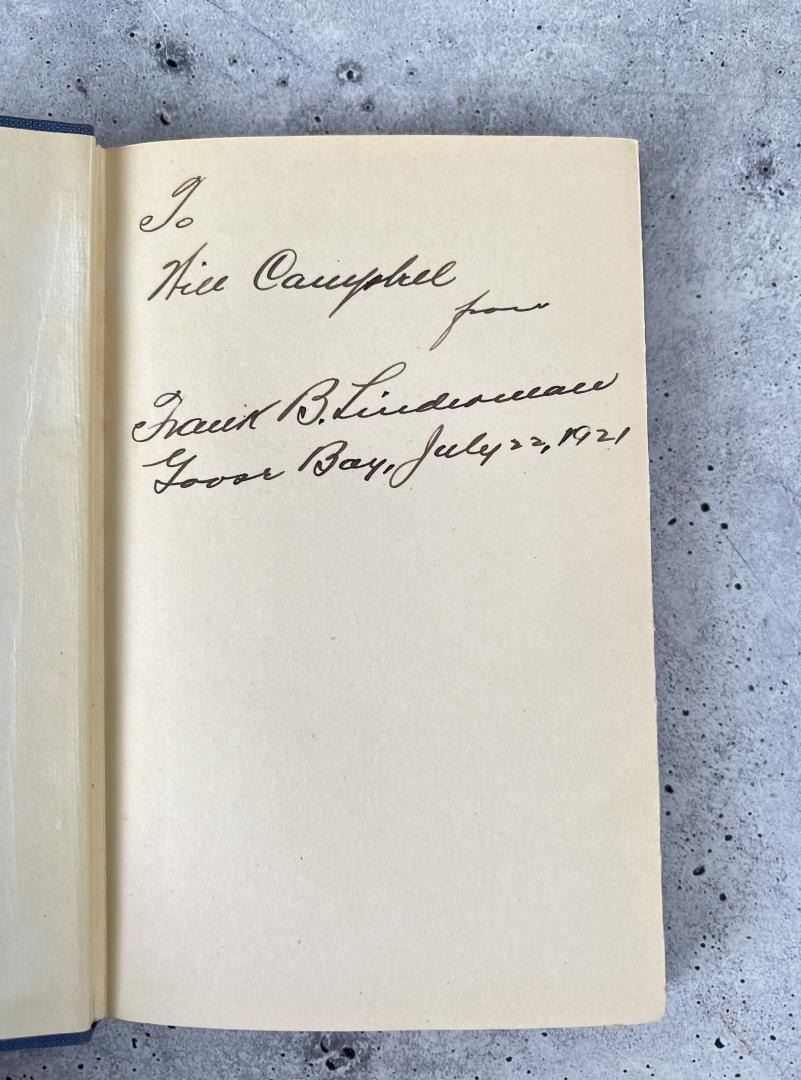 To
Will Campbell
from
Frank B. Linderman
Goose Bay, July 22, 1921